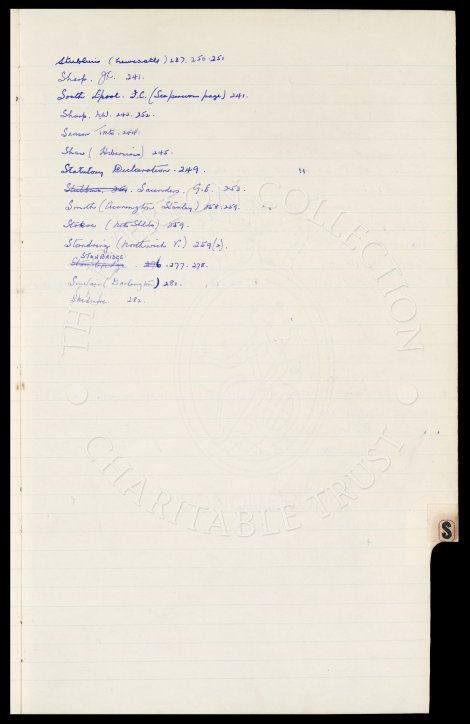 Stubbins (Newcastle) 287. 250. 251
Sharp. J.C. 241.
South Lpool. F.C. (See previous page) 241.
Sharp. W. 242. 252.
Season Tkts. 244.
Shaw (Hibernian) 245.
Statutory Declaration. 249.
Saunders. G.E. 252.
Smith (Accrington Stanley) 258. 259.
Stokoe (Nth Shlds) 259.
Standring (Northwich V.) 259(2).
STANBRIDGE
276. 277. 278.
(Darlington) 281.
282.
THE COLLECTION
CHARITABLE TRUST
S